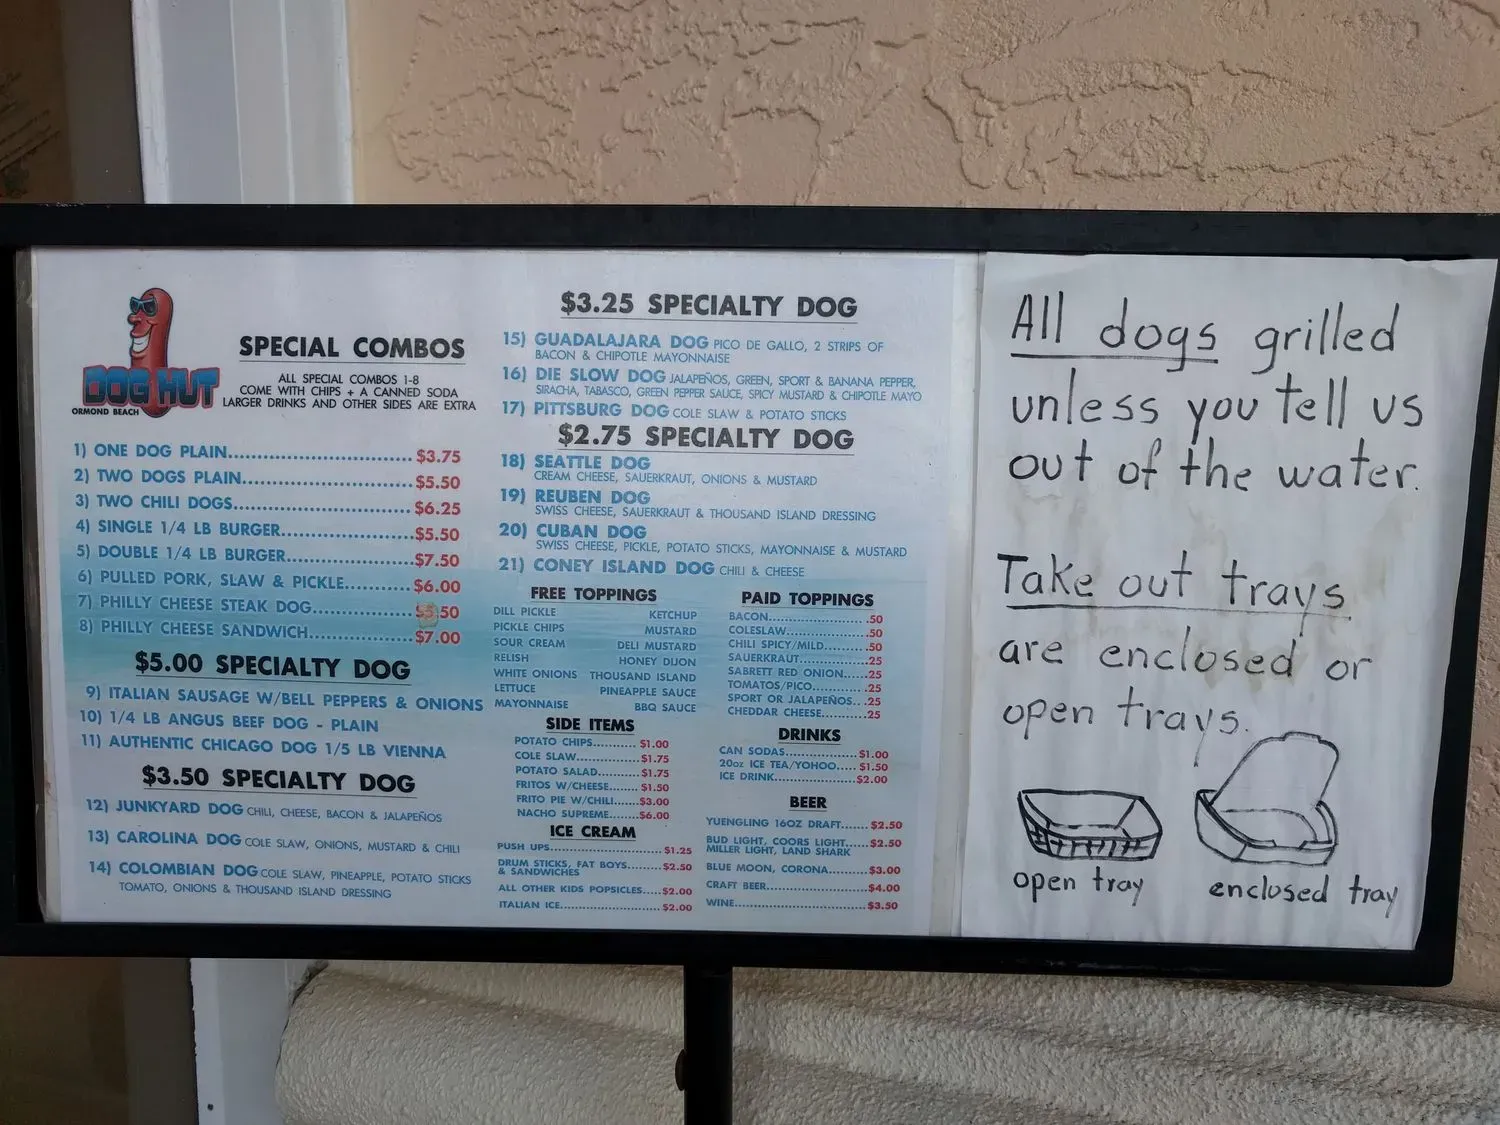 DOG HUT
ORMOND BEACH
SPECIAL COMBOS
ALL SPECIAL COMBOS 1-8
COME WITH CHIPS + A CANNED SODA
LARGER DRINKS AND OTHER SIDES ARE EXTRA
1) ONE DOG PLAIN..............................$3.75
2) TWO DOGS PLAIN............................$5.50
3) TWO CHILI DOGS.............................$6.25
4) SINGLE 1/4 LB BURGER......................$5.50
5) DOUBLE 1/4 LB BURGER.....................$7.50
6) PULLED PORK, SLAW & PICKLE...........$6.00
7) PHILLY CHEESE STEAK DOG................$ 50
8) PHILLY CHEESE SANDWICH................$7.00
$5.00 SPECIALTY DOG
9) ITALIAN SAUSAGE W/BELL PEPPERS & ONIONS
10) 1/4 LB ANGUS BEEF DOG - PLAIN
11) AUTHENTIC CHICAGO DOG 1/5 LB VIENNA
$3.50 SPECIALTY DOG
12) JUNKYARD DOG CHILI, CHEESE, BACON & JALAPEÑOS
13) CAROLINA DOG COLE SLAW, ONIONS, MUSTARD & CHILI
14) COLOMBIAN DOG COLE SLAW, PINEAPPLE, POTATO STICKS
TOMATO, ONIONS & THOUSAND ISLAND DRESSING
$3.25 SPECIALTY DOG
15) GUADALAJARA DOG PICO DE GALLO, 2 STRIPS OF
BACON & CHIPOTLE MAYONNAISE
16) DIE SLOW DOG JALAPEÑOS, GREEN, SPORT & BANANA PEPPER,
SIRACHA, TABASCO, GREEN PEPPER SAUCE, SPICY MUSTARD & CHIPOTLE MAYO
17) PITTSBURG DOG COLE SLAW & POTATO STICKS
$2.75 SPECIALTY DOG
18) SEATTLE DOG
CREAM CHEESE, SAUERKRAUT, ONIONS & MUSTARD
19) REUBEN DOG
SWISS CHEESE, SAUERKRAUT & THOUSAND ISLAND DRESSING
20) CUBAN DOG
SWISS CHEESE, PICKLE, POTATO STICKS, MAYONNAISE & MUSTARD
21) CONEY ISLAND DOG CHILI & CHEESE
FREE TOPPINGS
DILL PICKLE KETCHUP
PICKLE CHIPS MUSTARD
SOUR CREAM DELI MUSTARD
RELISH HONEY DIJON
WHITE ONIONS THOUSAND ISLAND
LETTUCE PINEAPPLE SAUCE
MAYONNAISE BBQ SAUCE
SIDE ITEMS
POTATO CHIPS.......... $1.00
COLE SLAW..............$1.75
POTATO SALAD..........$1.75
FRITOS W/CHEESE.......$1.50
FRITO PIE W/CHILI......$3.00
NACHO SUPREME.......$6.00
ICE CREAM
PUSH UPS........................$1.25
DRUM STICKS, FAT BOYS........$2.50
& SANDWICHES
ALL OTHER KIDS POPSICLES....$2.00
ITALIAN ICE......................$2.00
PAID TOPPINGS
BACON......................50
COLESLAW.................50
CHILI SPICY/MILD.........50
SAUERKRAUT..............25
SABRETT RED ONION.....25
TOMATOS/PICO............25
SPORT OR JALAPEÑOS...25
CHEDDAR CHEESE.........25
DRINKS
CAN SODAS................$1.00
20oz ICE TEA/YOHOO.... $1.50
ICE DRINK..................$2.00
BEER
YUENGLING 16OZ DRAFT...... $2.50
BUD LIGHT, COORS LIGHT......$2.50
MILLER LIGHT, LAND SHARK
BLUE MOON, CORONA.........$3.00
CRAFT BEER....................$4.00
WINE............................$3.50
All dogs grilled
unless you tell us
out of the water.
Take out trays
are enclosed or
open trays.
open tray
enclosed tray